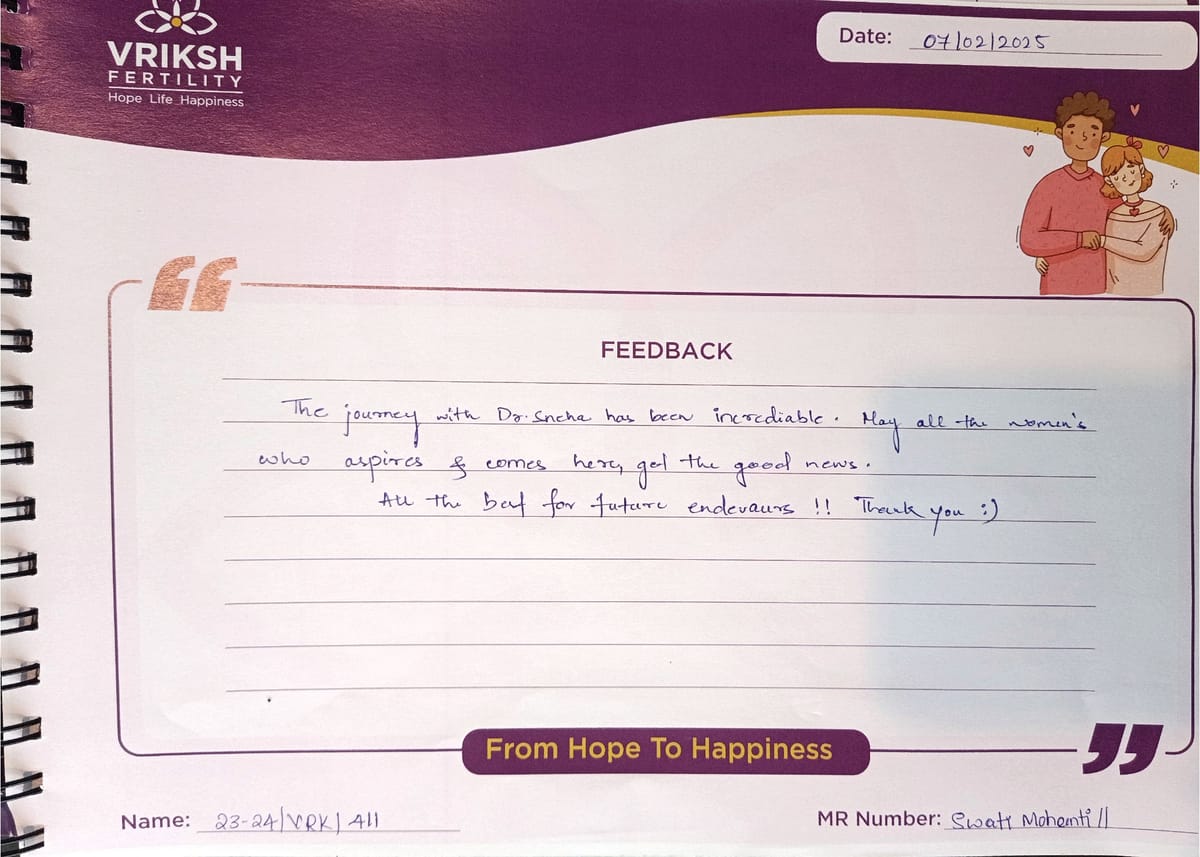 VRIKSH
FERTILITY
Hope Life Happiness
Date: 07/02/2025
FEEDBACK
The journey with Dr. Sneha has been incrediable. May all the women's
who aspires & comes here, get the good news.
All the best for future endevaurs !! Thank you :)
From Hope To Happiness
Name: 23-24/VRK/411
MR Number: Swati Mohanti //